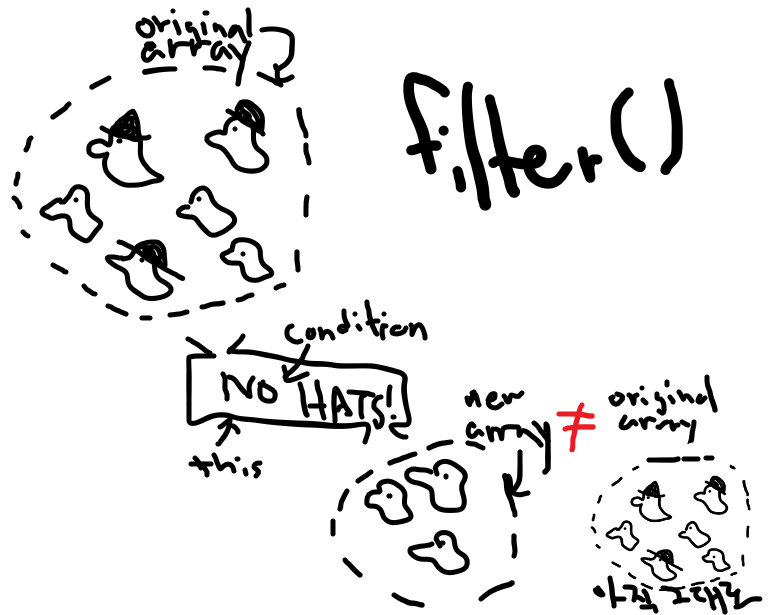 original
array
filter()
condition
NO HATS!
this
new
array
≠
original
array
아직 그대로